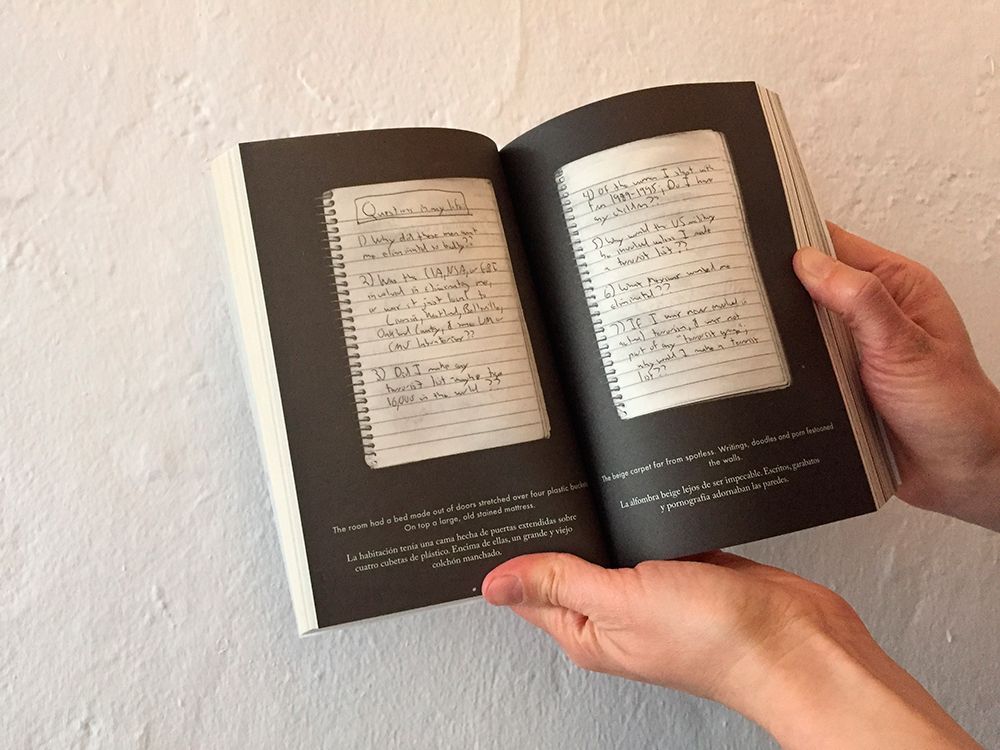 Questions in my life
1) Why did these men want
me eliminated so badly??
2) Was the CIA, NSA, or FBI
involved in eliminating me,
or was it just local to
Livonia, Westland, Belleville,
Oakland County, & some
3) Did I make any
terrorist list
16,000 in the world??
The room had a bed made out of doors stretched over four plastic buckets
On top a large, old stained mattress.
La habitación tenía una cama hecha de puertas extendidas sobre
cuatro cubetas de plástico. Encima de ellas, un grande y viejo
colchón manchado.
4) Of the women I slept with
from 1989-1995, Do I have
any children??
5) Why would the US military
be involved unless I made
a terrorist list??
6) What wanted me
eliminated??
7) If I was never involved in
actual terrorism, & was not
part of any "terrorist group",
why would I make a terrorist
list??
The beige carpet far from spotless. Writings, doodles and porn festooned
the walls.
La alfombra beige lejos de ser impecable. Escritos, garabatos
y pornografía adornaban las paredes.